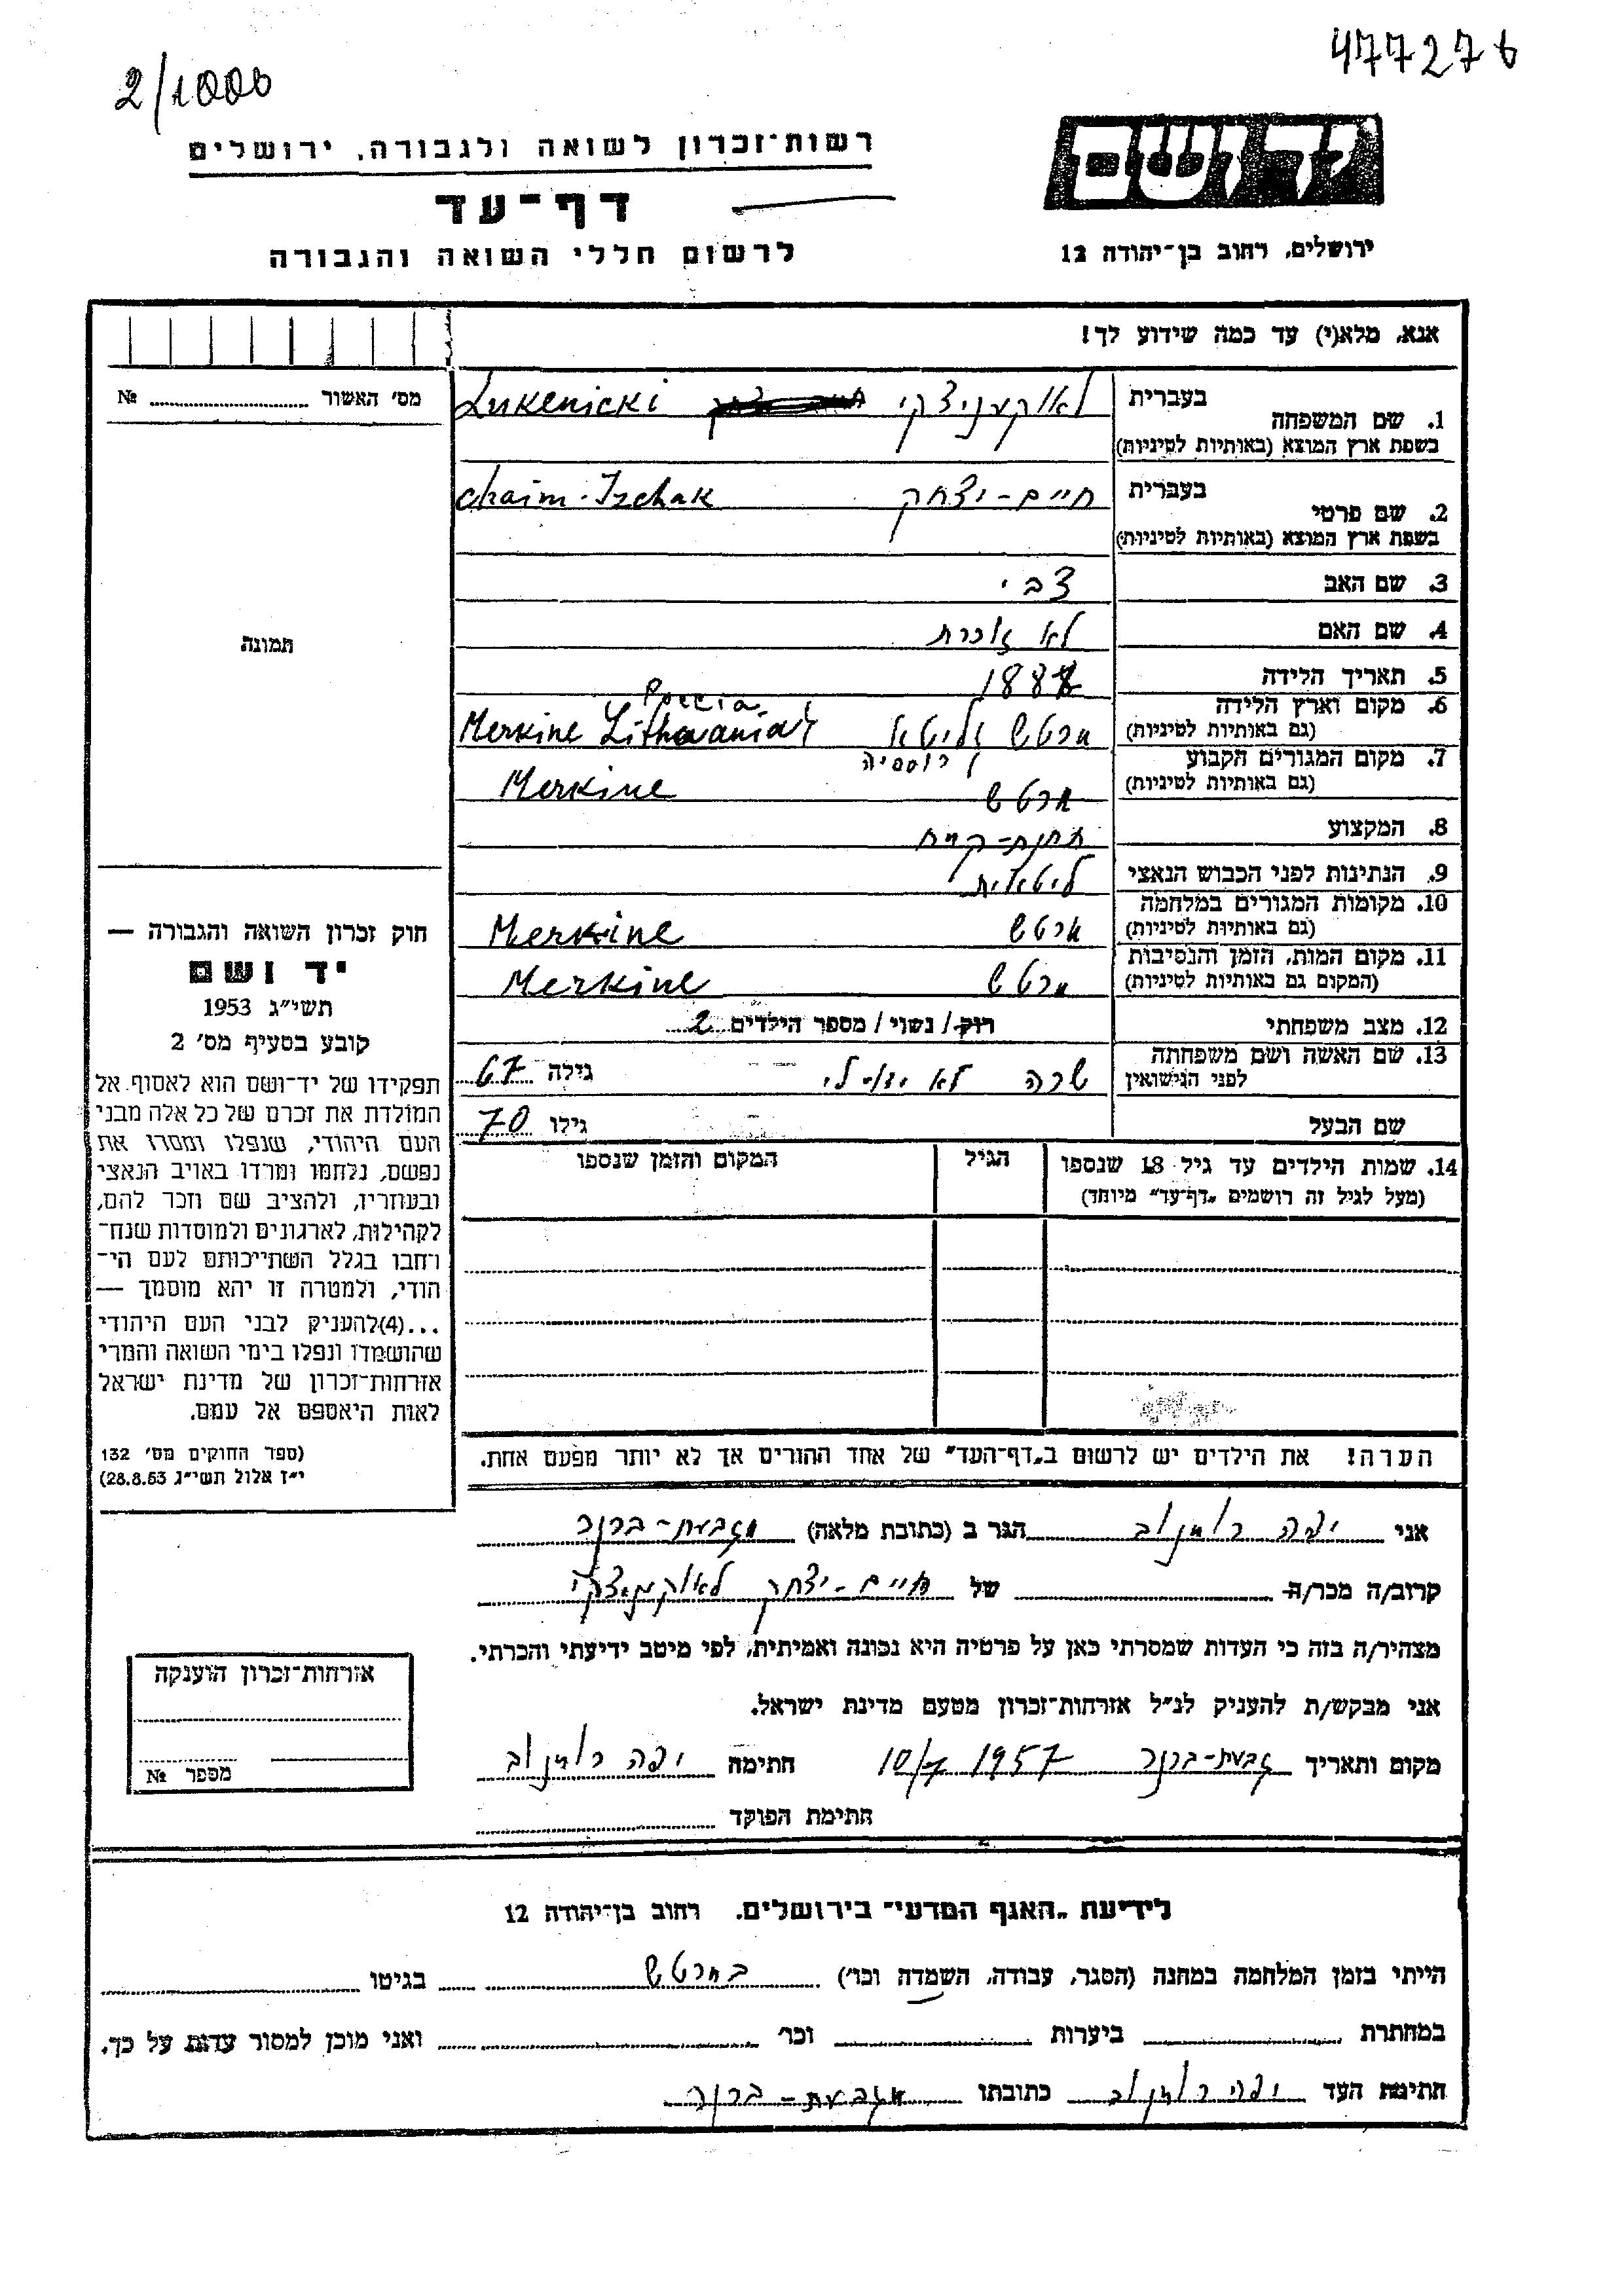 477276
2/1000
יד ושם
רשות־זכרון לשואה ולגבורה, ירושלים
דף־עד
לרשום חללי השואה והגבורה
ירושלים, רחוב בן־יהודה 12
אנא, מלא(י) עד כמה שידוע לך!
מס׳ האשור № 
תמונה
1. שם המשפחה
בעברית לאוקעניצקי Lukenicki
בשפת ארץ המוצא (באותיות לטיניות)
2. שם פרטי
בעברית חיים-יצחק chaim-Izchak
בשפת ארץ המוצא (באותיות לטיניות)
3. שם האב צבי
4. שם האם לא זוכרת
5. תאריך הלידה
6. מקום וארץ הלידה מרטש ליטא Merkine Lithavania
(גם באותיות לטיניות) רוססיה
7. מקום המגורים הקבוע מרטש Merkine
(גם באותיות לטיניות)
8. המקצוע תחנת-קמח
9. הנתינות לפני הכבוש הנאצי ליטאית
10. מקומות המגורים במלחמה מרטש Merkine
(גם באותיות לטיניות)
11. מקום המות, הזמן והנסיבות מרטש Merkine
(המקום גם באותיות לטיניות)
12. מצב משפחתי רוק/ נשוי/ מספר הילדים 2
13. שם האשה ושם משפחתה שרה לא ידוע לי גילה 67
לפני הנישואין
שם הבעל גילו 70
14. שמות הילדים עד גיל 18 שנספו הגיל המקום והזמן שנספו
(מעל לגיל זה רושמים „דף־עד״ מיוחד)
הערה! את הילדים יש לרשום ב„דף־העד״ של אחד ההורים אך לא יותר מפעם אחת.
חוק זכרון השואה והגבורה —
יד ושם
תשי״ג 1953
קובע בסעיף מס׳ 2
תפקידו של יד־ושם הוא לאסוף אל
המולדת את זכרם של כל אלה מבני
העם היהודי, שנפלו ומסרו את
נפשם, נלחמו ומרדו באויב הנאצי
ובעוזריו, ולהציב שם וזכר להם,
לקהילות, לארגונים ולמוסדות שנח־
רחבו בגלל השתייכותם לעם הי־
הודי, ולמטרה זו יהא מוסמך —
...(4)להעניק לבני העם היהודי
שהושמדו ונפלו בימי השואה והמרי
אזרחות־זכרון של מדינת ישראל
לאות היאספם אל עמם.
(ספר החוקים מס׳ 132
י״ז אלול תשי״ג 28.8.53)
אני יפה הגר ב (כתובת מלאה) מגבעת-ברנר
קרוב/ה מכר/ה של חיים-יצחק לאוקניצקי
מצהיר/ה בזה כי העדות שמסרתי כאן על פרטיה היא נכונה ואמיתית, לפי מיטב ידיעתי והכרתי.
אני מבקש/ת להעניק לנ״ל אזרחות־זכרון מטעם מדינת ישראל.
מקום ותאריך גבעת-ברנר 10/7 1957 חתימה יפה
חתימת הפוקד
אזרחות־זכרון הוענקה
מספר №
לידיעת „האגף המדעי״ בירושלים, רחוב בן־יהודה 12
הייתי בזמן המלחמה במחנה (הסגר, עבודה, השמדה וכו׳) במרטש בגיטו
במחתרת ביערות וכו׳ ואני מוכן למסור עדות על כך.
חתימת העד יפה כתובתו מגבעת-ברנר